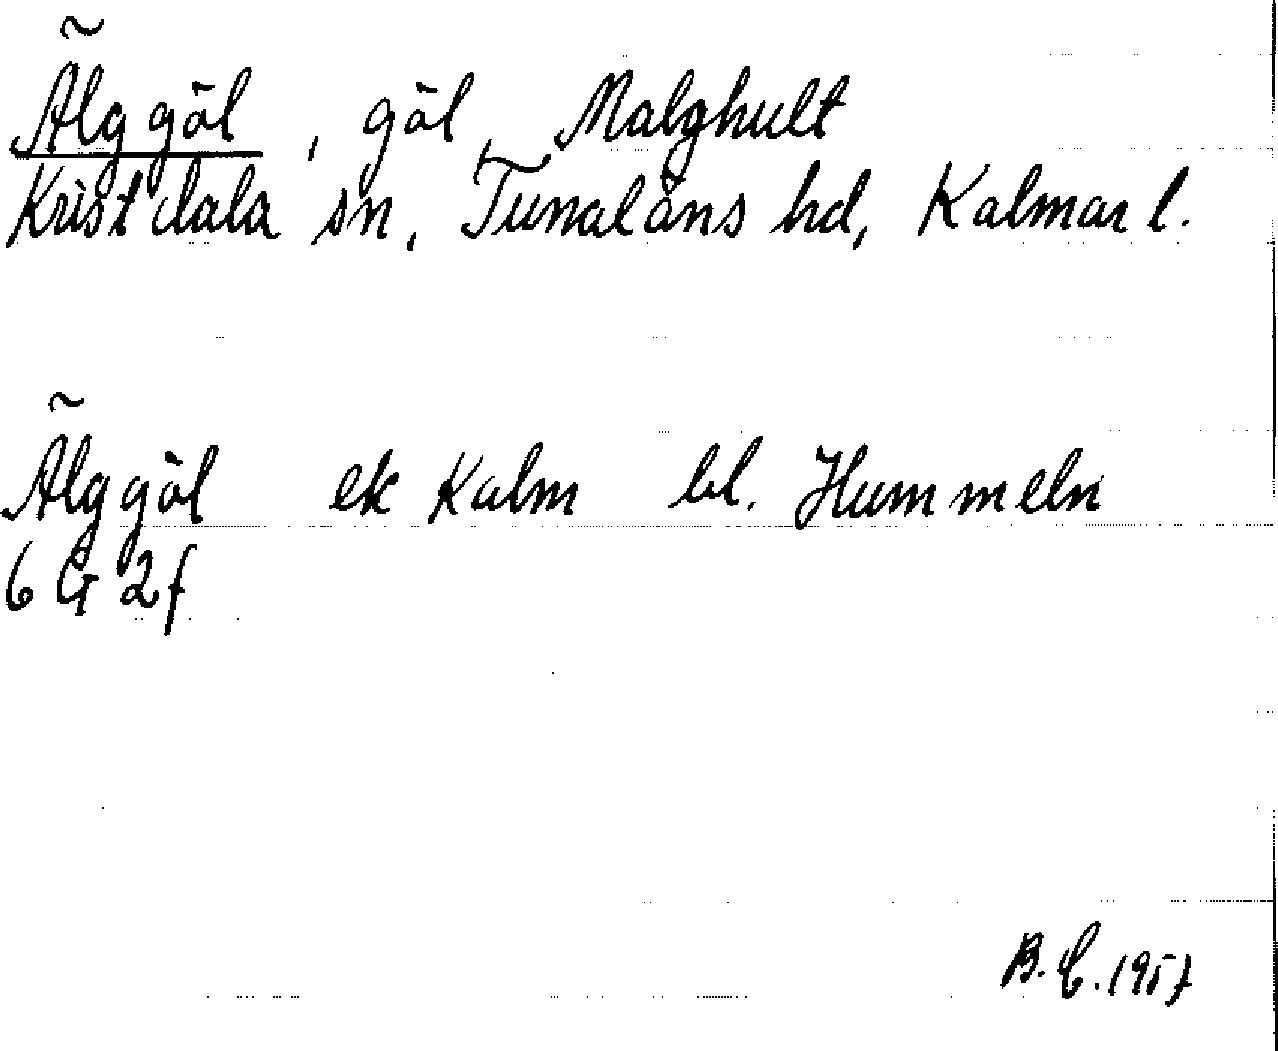 Älggöl, göl, Malghult
Kristdala sn, Tunaläns hd, Kalmar l.
Älggöl ek Kalm bl. Hummeln
6 G 2f
B.C. 1957